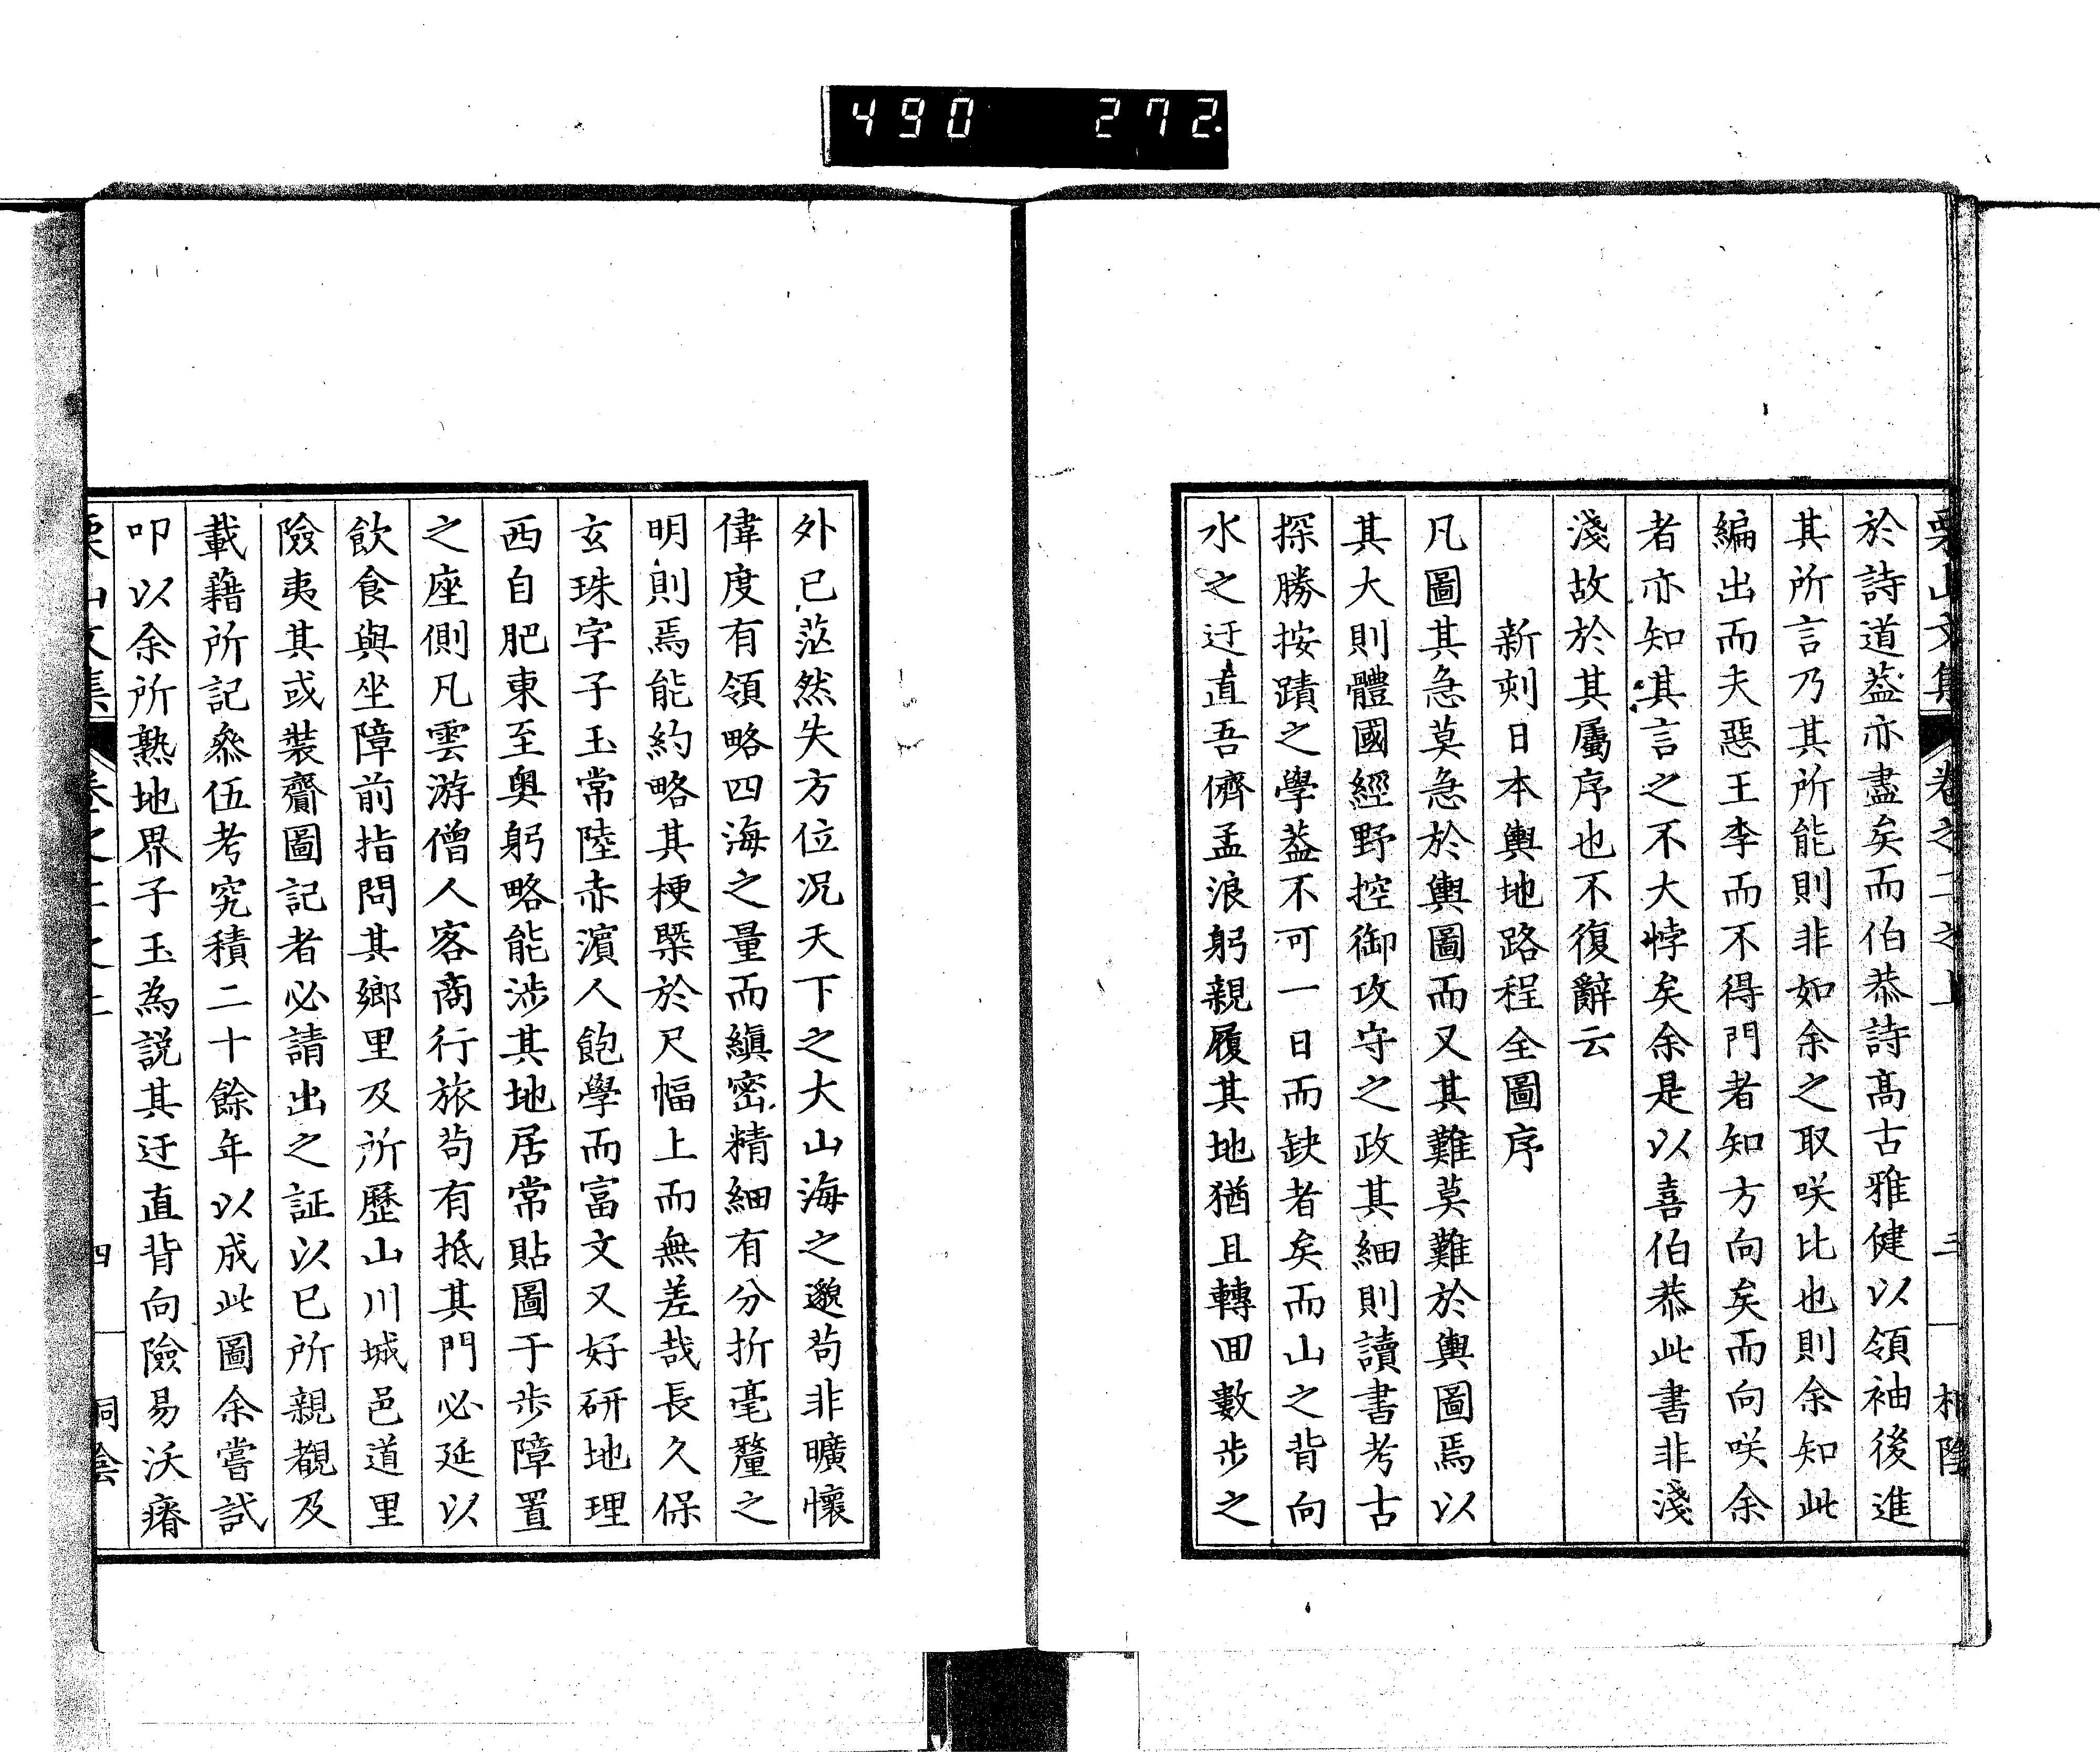 490 272.
栗山文集 卷之二之上 三
於詩道葢亦盡矣而伯恭詩高古雅健以領袖後進
其所言乃其所能則非如余之取咲比也則余知此
編出而夫惡王李而不得門者知方向矣而向咲余
者亦知其言之不大悖矣余是以喜伯恭此書非淺
淺故於其屬序也不復辭云
新刻日本輿地路程全圖序
凡圖其急莫急於輿圖而又其難莫難於輿圖焉以
其大則體國經野控御攻守之政其細則讀書考古
探勝按蹟之學葢不可一日而缺者矣而山之背向
水之迂直吾儕孟浪躬親履其地猶且轉回數步之
外已茫然失方位况天下之大山海之邈苟非曠懷
偉度有領略四海之量而縝密精細有分折毫釐之
明則焉能約略其梗槩於尺幅上而無差哉長久保
玄珠字子玉常陸赤濱人飽學而富文又好研地理
西自肥東至奥躬略能涉其地居常貼圖于步障置
之座側凡雲游僧人客商行旅苟有抵其門必延以
飲食與坐障前指問其鄉里及所歷山川城邑道里
險夷其或裝齎圖記者必請出之証以已所親覩及
載藉所記叅伍考究積二十餘年以成此圖余嘗試
叩以余所熟地界子玉為説其迂直背向險易沃瘠
栗山文集 卷之二之上 四